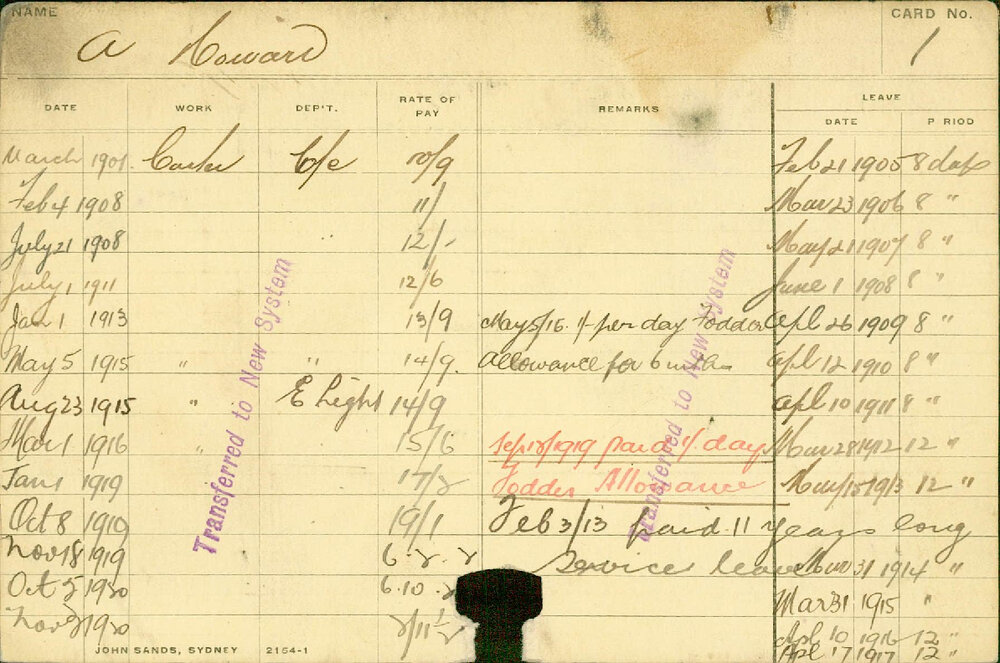 NAME
CARD No.
A Howard
1
DATE WORK DEP'T. RATE OF PAY REMARKS LEAVE
DATE P RIOD
March 1901 Carter C/e 10/9 Feb 21 1905 8 days
Feb 4 1908 11/ Mar 23 1906 8 "
July 21 1908 12/- May 21 1907 8 "
July 1 1911 12/6 June 1 1908 8 "
Jan 1 1913 13/9 May 5/15. 1/- per day Fodder Apl 26 1909 8 "
May 5 1915 " " 14/9. Allowance for 6 mths Apl 12 1910 8 "
Aug 23 1915 " E Light 14/9 Apl 10 1911 8 "
Mar 1 1916 " 15/6 Sep 18/1919 paid 1/. day Mar 28 1912 12 "
Jan 1 1919 17/2 Fodder Allowance Mar/15 1913 12 "
Oct 8 1919 19/1 Feb 3/13 paid 11 years long
Nov 18 1919 6. 2. 2 Service leave Mar 31 1914 "
Oct 5 1920 6.10. Mar 31 1915 "
Nov 1920 Apl 10 1916 12 "
Apl 17 1917 12 "
Transferred to New System
Transferred to New System
JOHN SANDS, SYDNEY 2154-1